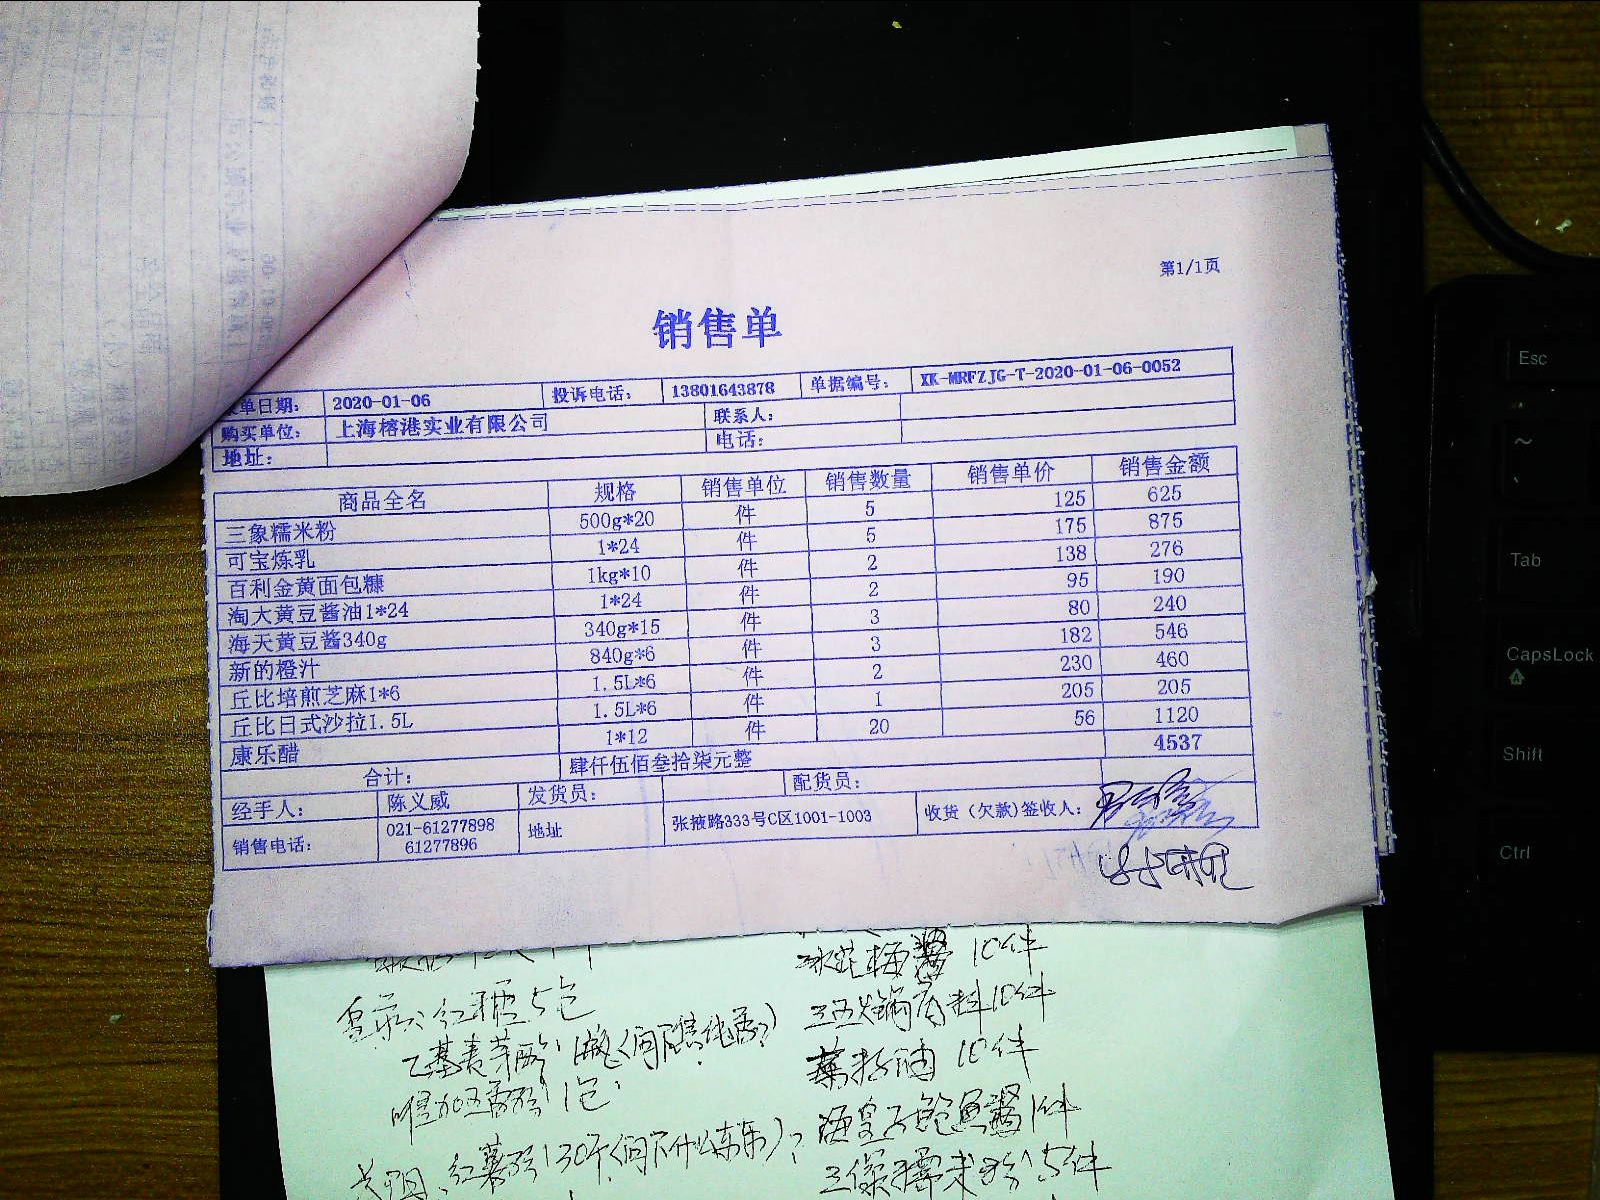 第1/1页
销售单
单日期: 2020-01-06 投诉电话: 13801643878 单据编号: XK-MRFZJG-T-2020-01-06-0052
购买单位: 上海榕港实业有限公司 联系人:
地址: 电话:
商品全名 规格 销售单位 销售数量 销售单价 销售金额
三象糯米粉 500g*20 件 5 125 625
可宝炼乳 1*24 件 5 175 875
百利金黄面包糠 1kg*10 件 2 138 276
淘大黄豆酱油1*24 1*24 件 2 95 190
海天黄豆酱340g 340g*15 件 3 80 240
新的橙汁 840g*6 件 3 182 546
丘比培煎芝麻1*6 1.5L*6 件 2 230 460
丘比日式沙拉1.5L 1.5L*6 件 1 205 205
康乐醋 1*12 件 20 56 1120
合计: 肆仟伍佰叁拾柒元整 4537
经手人: 陈义威 发货员: 配货员:
销售电话: 021-61277898 61277896 地址 张掖路333号C区1001-1003 收货(欠款)签收人:
10件
红糖5包
三五火锅底料10件
乙基麦芽酚1瓶
10件
1包
海皇子鲍鱼酱1件
红薯粉130个
三象糯米粉5件
Esc
~
Tab
CapsLock
A
Shift
Ctrl